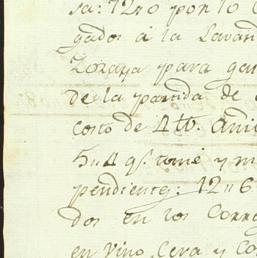 sa: 7240 por lo
gados à la Lavan
Zozaya para ga
de la partida de
costo de 4 tt. Ani
5„4 qs. tomé y m
pendientes: 12„6
dos en los Corre
en Vino, Cera, y Co